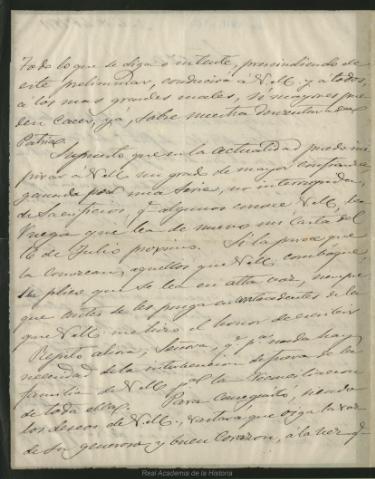 Todo lo que se diga o intente, prescindiendo de
este preliminar, conducirá á V.M. y á todos,
á los mas grandes males, si mayores pue
den caer, ya, sobre nuestra desventurada
Patria.
Supuesto que en la actualidad puedo ins
pirar á V.M. un grado de mayor confianza,
ganada por una serie, no interrumpida,
de sacrificios, q.e algunos conoce V.M., la
ruego que lea de nuevo mi Carta del
16 de Julio proximo. Si la para que
la conozcan, aquellos que V.M.
suplico que se lea en alta voz, siempre
que antes se les ponga en antecedentes de la
que V.M. me hizo el honor de escribir
Repito ahora, Señora, q.e p.a nada hay
necesidad de la intervencion de fuera de la
familia de V.M. p.a la reconciliacion
de toda ella. Para conseguirlo, siendo
los deseos de V.M., bastara que oiga la voz
de su generoso y buen Corazon, á la vez q.e
Real Academia de la Historia